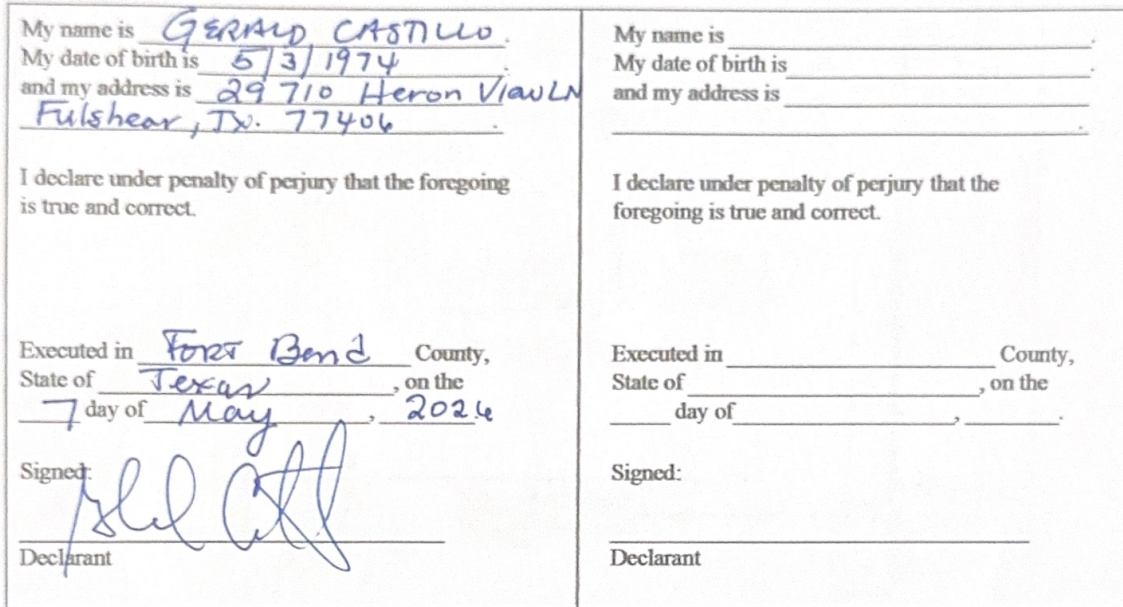 My name is GERALD CASTILLO.
My date of birth is 5/3/1974.
and my address is 29710 Heron View LN
Fulshear, Tx. 77406.
I declare under penalty of perjury that the foregoing
is true and correct.
Executed in Fort Bend County,
State of Texas, on the
7 day of May, 2026
Signed:
Declarant
My name is .
My date of birth is .
and my address is
.
I declare under penalty of perjury that the
foregoing is true and correct.
Executed in County,
State of , on the
day of , .
Signed:
Declarant